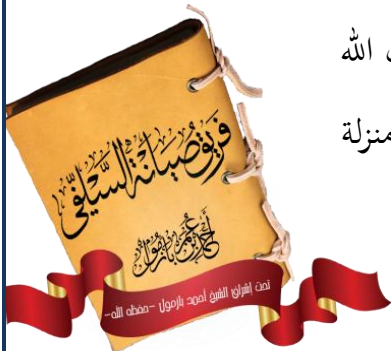 الله
منزلة
فريق صيانة السلفي
أحمد بن عمر بازمول
تحت إشراف الشيخ أحمد بازمول -حفظه الله-